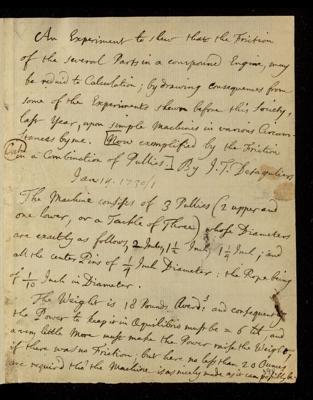 An Experiment to shew that the Friction
of the several Parts in a compound Engine, may
be reduc'd to Calculation; by drawing consequences from
some of the Experiments shewn before this Society,
last Year, upon simple Machines in various Circum-
stances by me. [Now exemplified by the Friction
in a Combination of Pullies] By J. T. Desaguliers
Jan 14. 1730/1
The Machine consists of 3 Pullies (2 upper and
one lower, or a Tackle of Three) whose Diameters
are exactly as follows, 2 Inch, 1½ Inch, 1¼ Inch; and
all the center Pins of ¼ Inch Diameter: the Rope being
of 1/10 Inch in Diameter.
The Weight is 18 Pounds Averds and consequently
the Power to keep it in Equilibrio must be = 6 lb, and
a very little More must make the Power raise the Weight,
if there was no Friction; but here no less than 20 Ounces
are requir'd tho' the Machine is as nicely made as